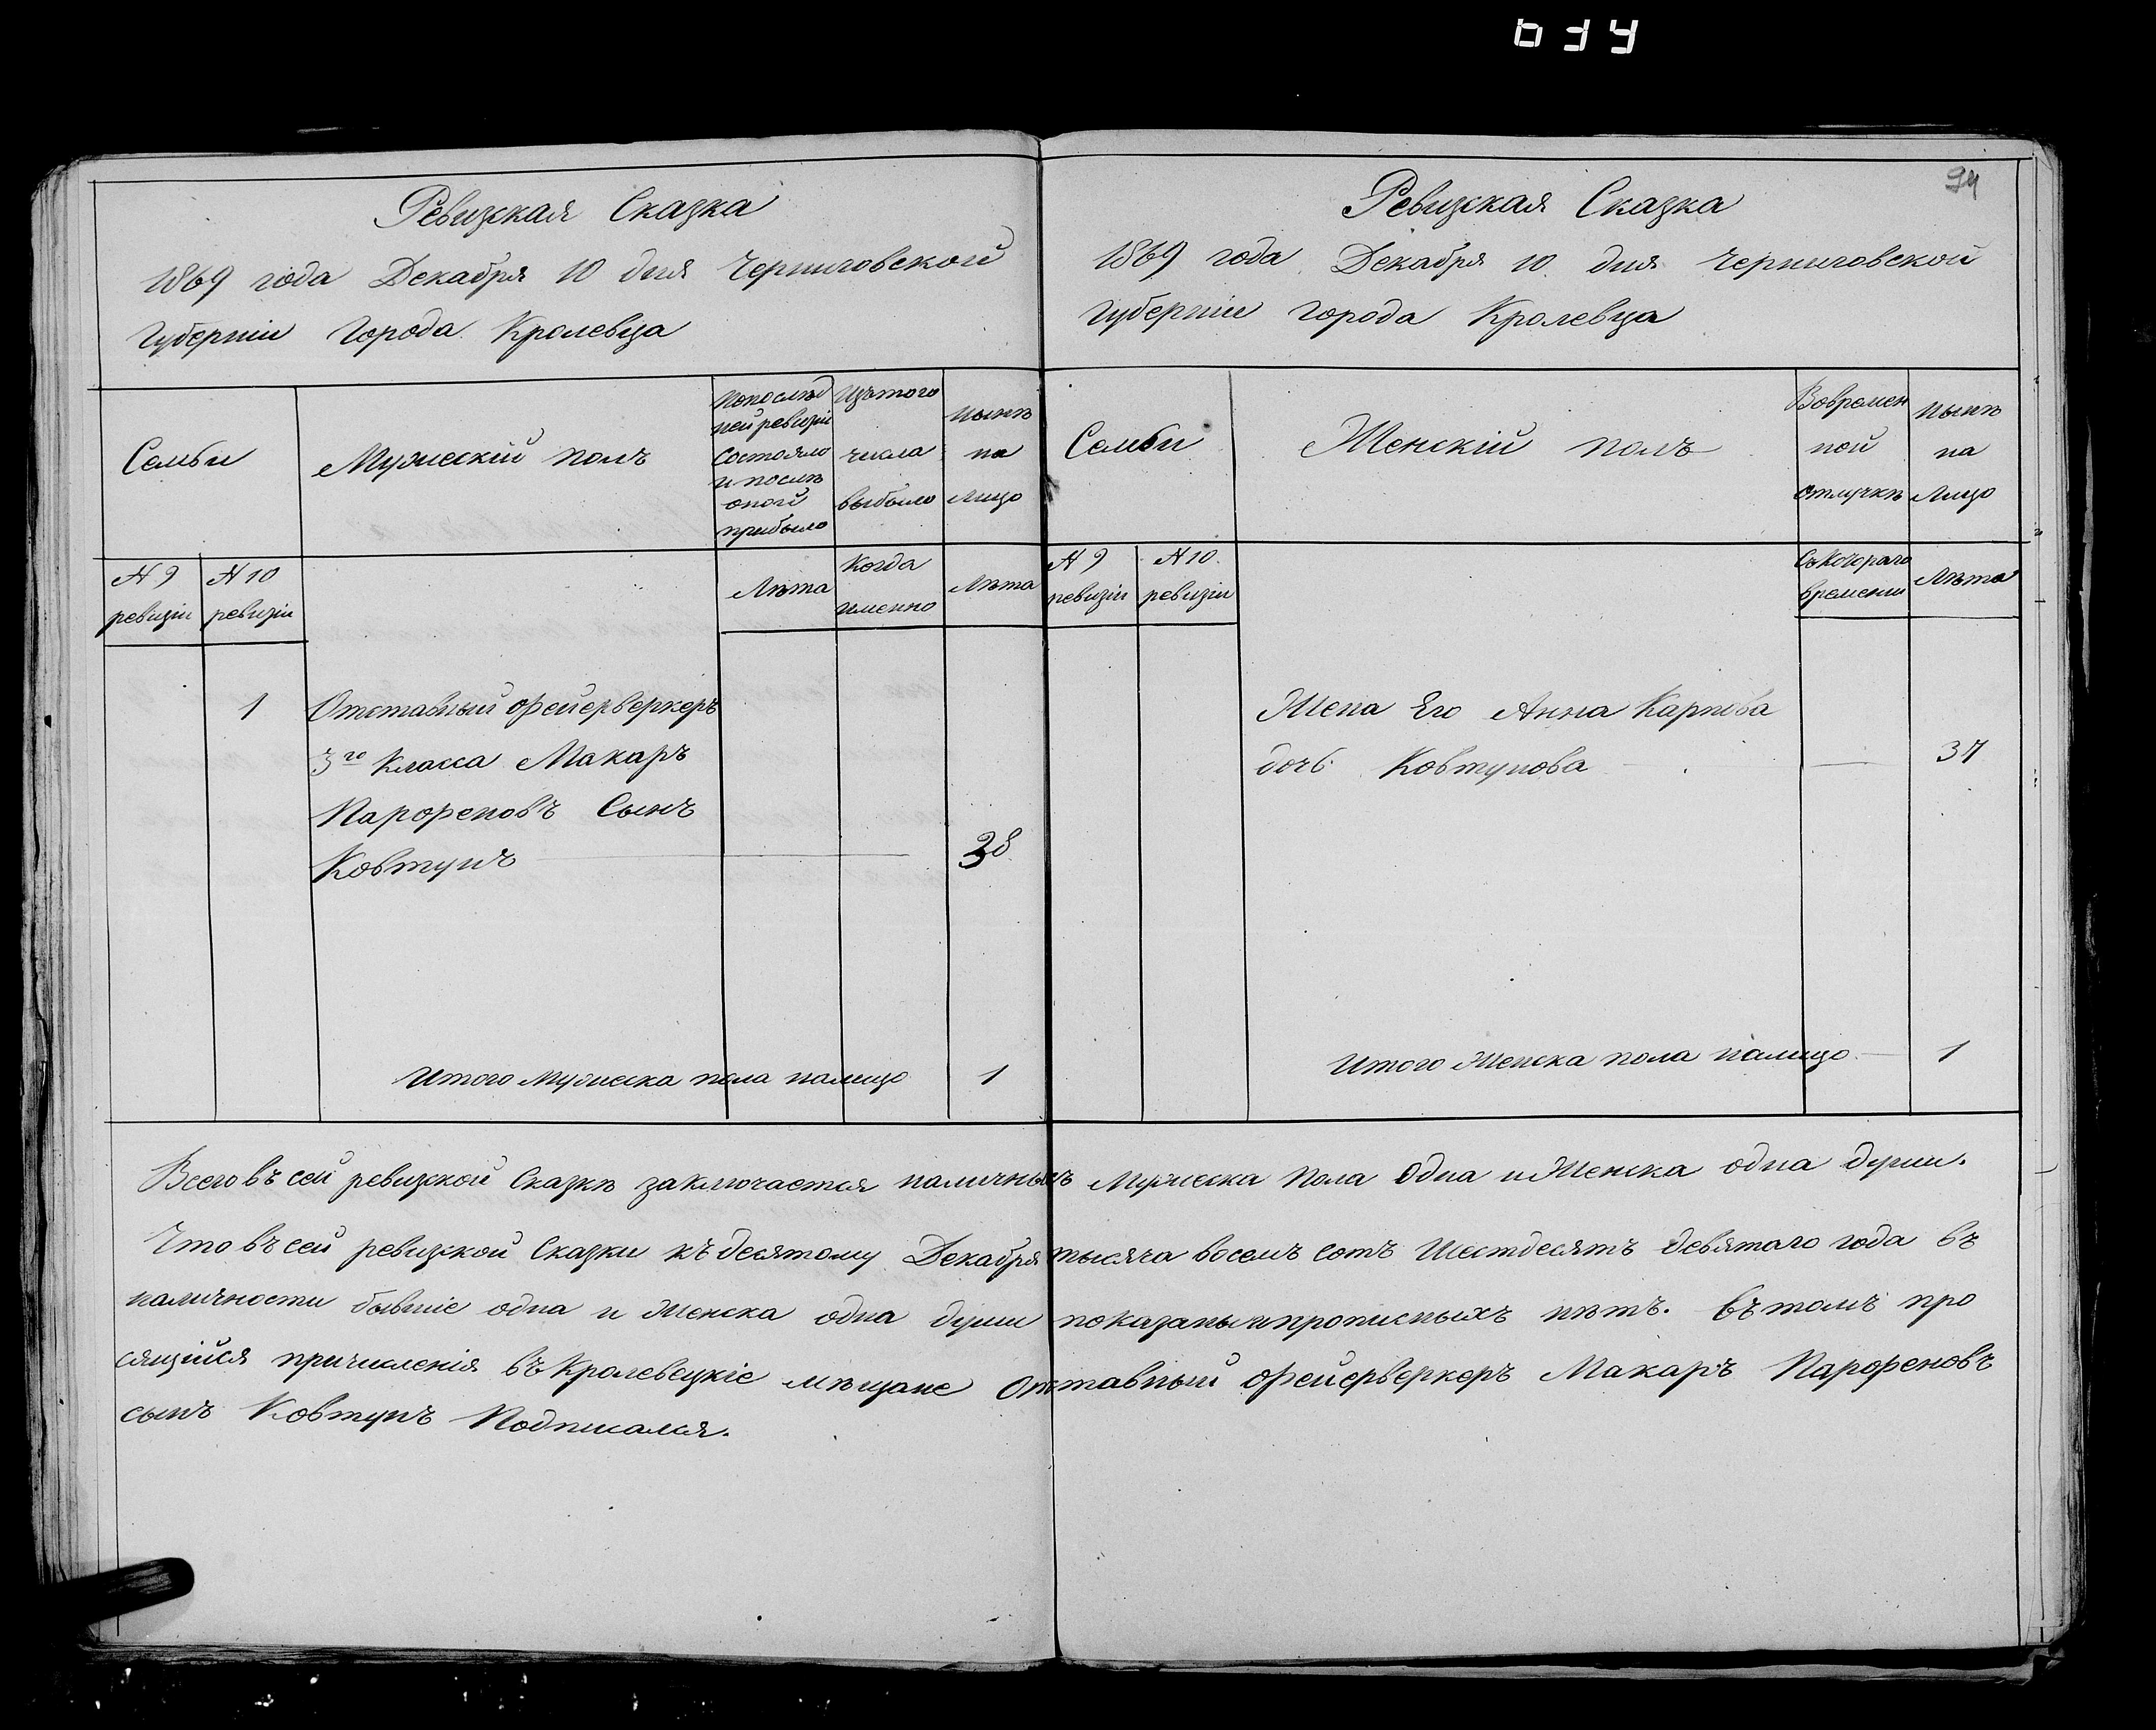 Ревизская Сказка
1869 года Декабря 10 дня Черниговской
Губерніи Города Кролевца
Семьи
Мужескій полъ
Попослѣд
ней ревизіи
Состояло
и послѣ
оной
прибыло
Изътого
числа
выбыло
нынѣ
на
лицо
N 9
ревизіи
N 10
ревизіи
Лѣта
Когда
именно
Лѣта
1
Отставный фейерверкеръ
3го Класса Макаръ
Парофеновъ Сынъ
Ковтунъ
38
Итого Мужеска пола налицо 1
94
Ревизская Сказка
1869 года Декабря 10 дня Черниговской
Губерніи Города Кролевца
Семьи
Женскій полъ
Вовремен
ной
отлучкѣ
нынѣ
на
Лицо
N 9
ревизіи
N 10
ревизіи
Съкотораго
времени
Лѣта
Жена Его Анна Карпова
дочь Ковтунова
37
Итого Женска пола налицо 1
Всего въ сей ревизкой Сказкѣ заключается наличныхъ Мужеска Пола Одна и Женска одна души.
Что въ сей ревизкой Сказки къ десятому Декабря тысяча восемъ сотъ Шестдесятъ девятаго года въ
наличности бывшіе одна и Женска одна души показаны и прописныхъ нѣтъ. Въ томъ про
сящійся причисленія въ Кролевецкіе мѣщане Отставный фейерверкеръ Макаръ Парофеновъ
сынъ Ковтунъ Подписался.